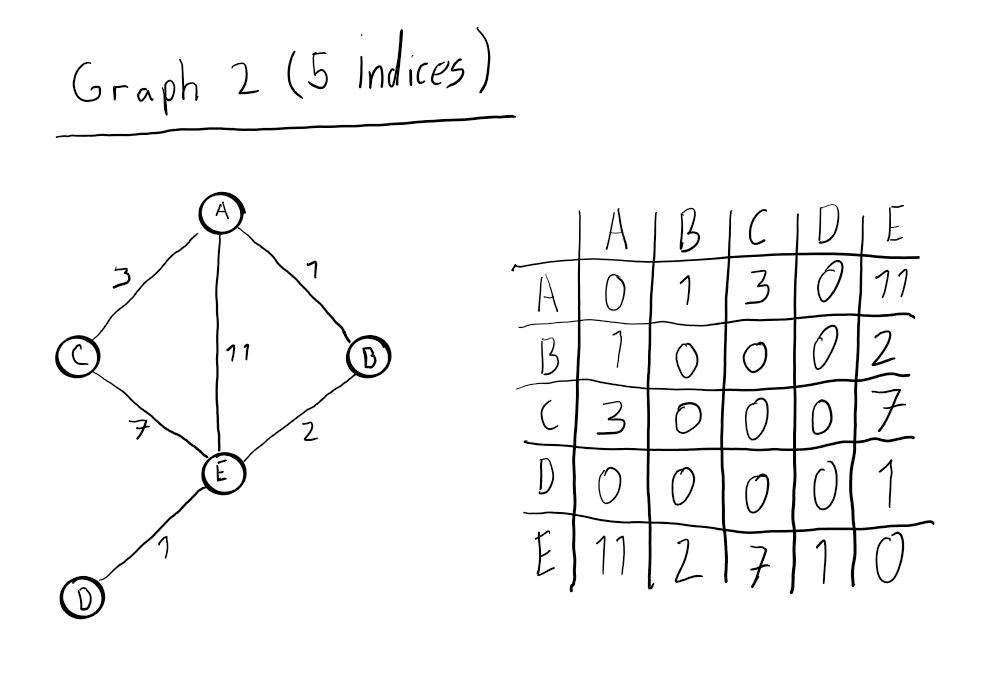 Graph 2 (5 Indices)
A
3
1
C
11
B
7
2
E
1
D
A B C D E
A 0 1 3 0 11
B 1 0 0 0 2
C 3 0 0 0 7
D 0 0 0 0 1
E 11 2 7 1 0